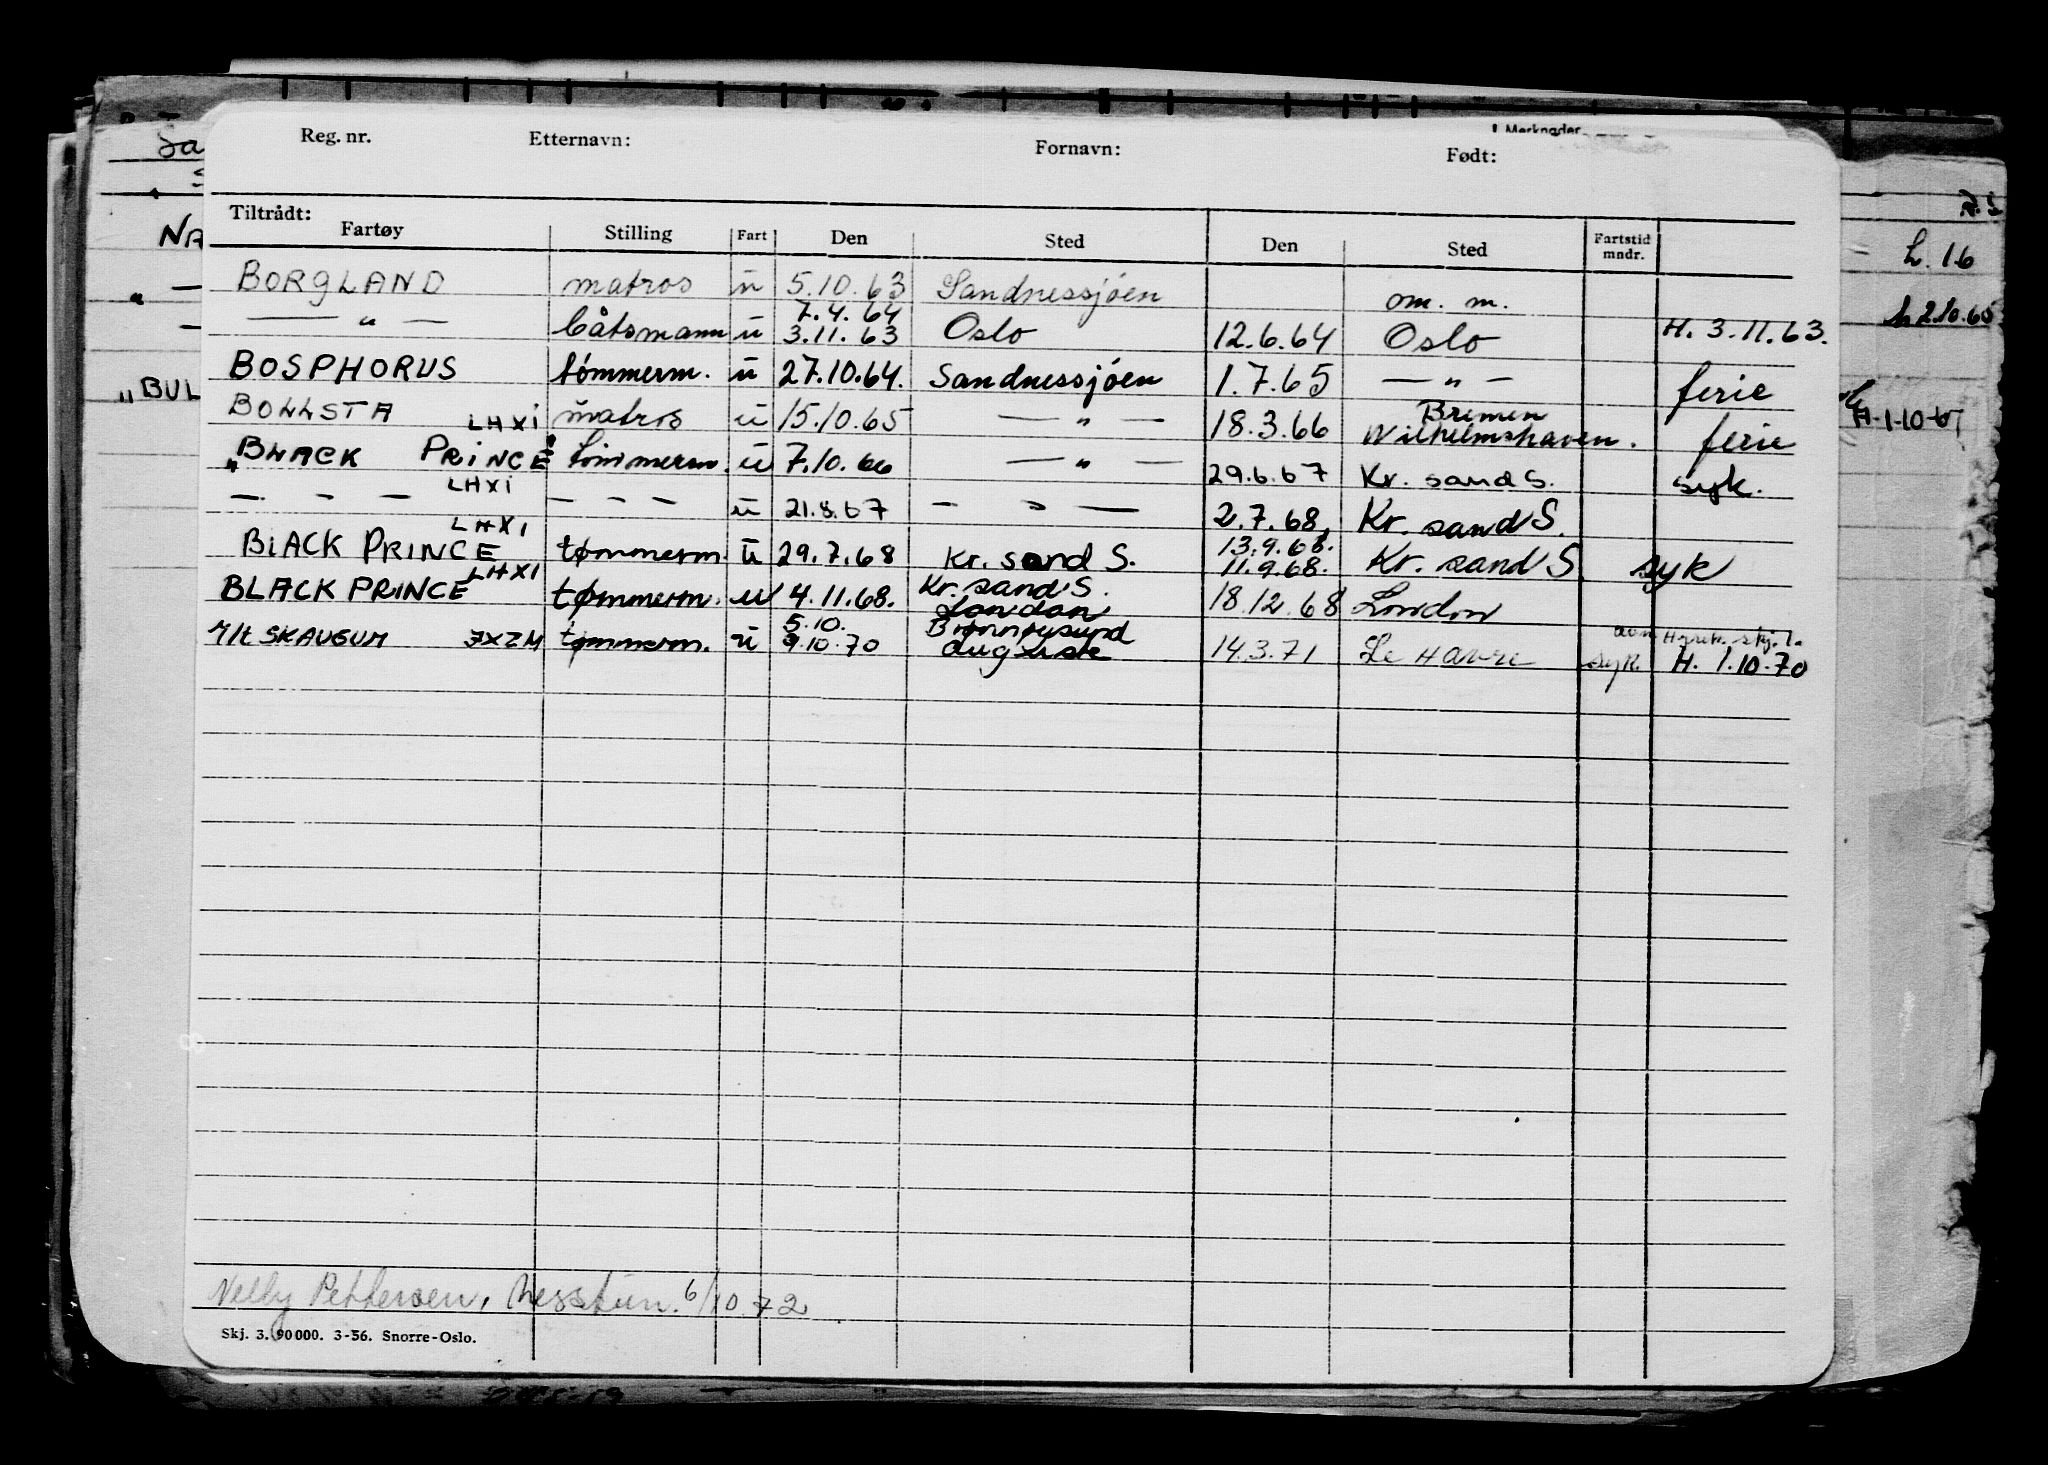 Reg. nr. Etternavn: Fornavn: Født:
Tiltrådt:
Fartøy Stilling Fart Den Sted Den Sted Fartstid mndr.
BORGLAND matros u 5.10.63 Sandnessjøen om. m.
— " — båtsmann u 7.4.64 3.11.63 Oslo 12.6.64 Oslo H. 3.11.63.
BOSPHORUS tømmerm. u 27.10.64. Sandnessjøen 1.7.65 — " — ferie
BOLLSTA matros u 15.10.65 — " — 18.3.66 Bremen Wilhelmshaven. ferie
"BLACK PRINCE" LHXI tømmerm. u 7.10.66 — " — 29.6.67 Kr. sand S. syk.
— - — LHXI — - - - u 21.8.67 — " — 2.7.68, Kr. sand S.
BLACK PRINCE LHXI tømmerm. u 29.7.68 Kr. sand S. 13.9.68. 11.9.68. Kr. sand S. syk
BLACK PRINCE LHXI tømmerm. u 4.11.68. Kr. sand S. London 18.12.68 London
M/t SKAUGUM JXZM tømmerm. u 5.10. 9.10.70 Brønnøysund 14.3.71 Le Havre syk. H. 1.10.70
Nelly Pettersen, 6/10.72
Skj. 3. 90000. 3-56. Snorre-Oslo.
NA
"BUL
L. 16
h 2.10.65